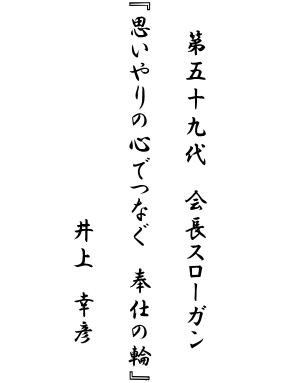 第五十九代　会長スローガン
『思いやりの心でつなぐ　奉仕の輪』
井上　幸彦